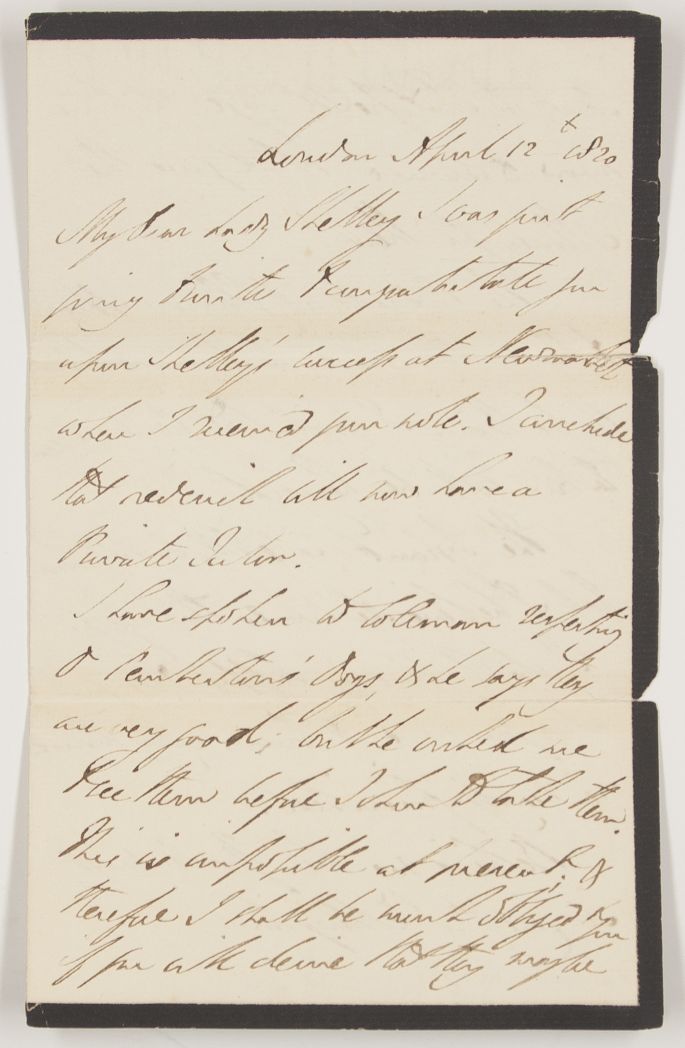 London April 12th 1820
My Dear Lady Shelley I was just
going to write & congratulate you
upon Shelley's success at Newmarket
when I received your note. I conclude
that Frederick will now have a
Private Tutor.
I have spoken to Coleman respecting
Pemberton's Dogs, & he says they
are very good; but he wished me
to see them before I should take them.
This is impossible at present; &
therefore I shall be much obliged to you
if you will desire that they may be